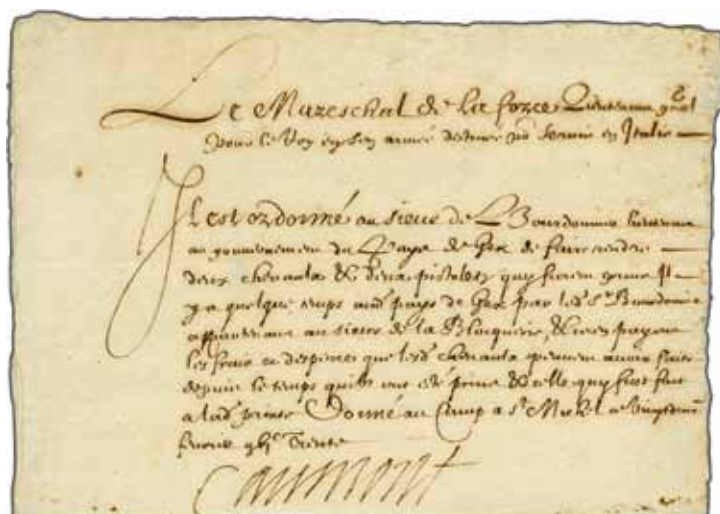 Le Mareschal de la force Lieutenant gnāl
pour le Roy en son armée destinée pour servir en Italie
Il est ordonné au sieur de Bourdonnier lieutenant
au gouvernement du Pays de Gex de faire rendre
deux chevaulx & deux pistoles quy furent
y a quelque temps aud pays de Gex par led Sr
appartenans au sieur de la Blocquerie, en payant
les frais et despences que lesd chevaulx peuvent avoir faite
depuis le temps quilz ont esté prins & celle quy fust faite
a lad prinse Donné au Camp a St Michel
febvrier Trente
Caumont